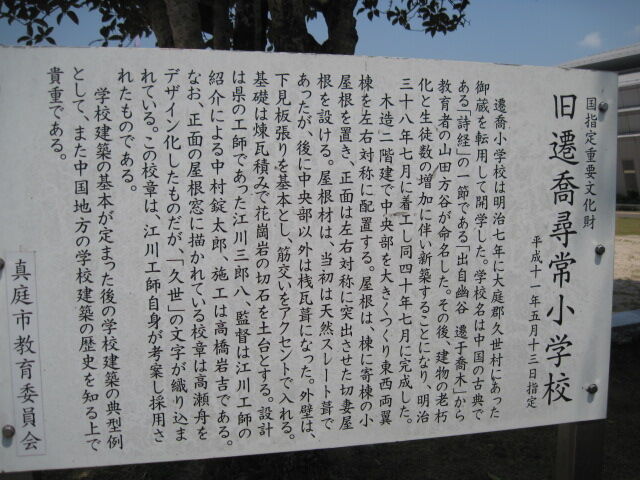 国指定重要文化財
旧遷喬尋常小学校
平成十一年五月十三日指定
遷喬小学校は明治七年に大庭郡久世村にあった
御蔵を転用して開学した。学校名は中国の古典で
ある「詩経」の一節である「出自幽谷　遷于喬木」から
教育者の山田方谷が命名した。その後、建物の老朽
化と生徒数の増加に伴い新築することになり、明治
三十八年七月に着工し同四十年七月に完成した。
木造二階建で中央部を大きくつくり東西両翼
棟を左右対称に配置する。屋根は、棟に寄棟の小
屋根を置き、正面は左右対称に突出させた切妻屋
根を設ける。屋根材は、当初は天然スレート葺で
あったが、後に中央部以外は桟瓦葺になった。外壁は、
下見板張りを基本とし、筋交いをアクセントで入れる。
基礎は煉瓦積みで花崗岩の切石を土台とする。設計
は県の工師であった江川三郎八、監督は江川工師の
紹介による中村錠太郎、施工は高橋岩吉である。
なお、正面の屋根窓に描かれている校章は高瀬舟を
デザイン化したものだが、「久世」の文字が織り込ま
れている。この校章は、江川工師自身が考案し採用さ
れたものである。
学校建築の基本が定まった後の学校建築の典型例
として、また中国地方の学校建築の歴史を知る上で
貴重である。
真庭市教育委員会